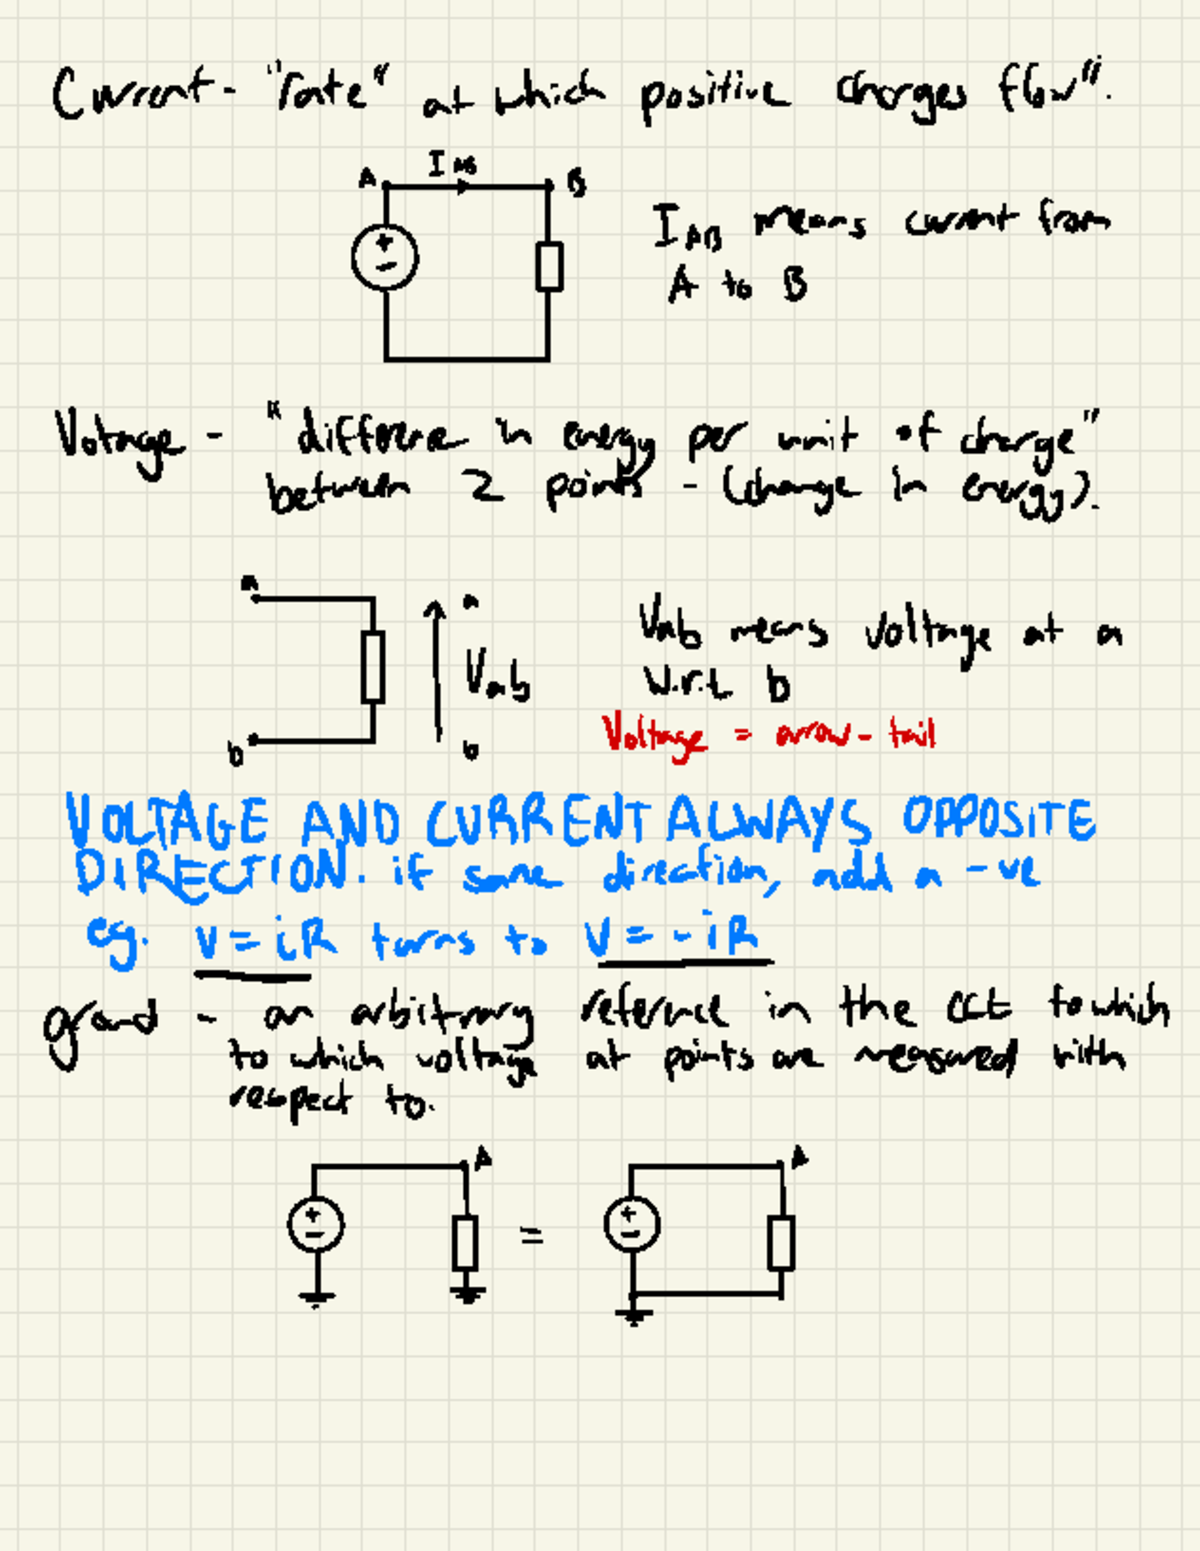 Current - "rate" at which positive charges flow".
A I AB B
+
-
IAB means current from
A to B
Voltage - "difference in energy per unit of charge"
between 2 points - (change in energy).
a
a
Vab
b
b
Vab means voltage at a
w.r.t b
Voltage = arrow - tail
VOLTAGE AND CURRENT ALWAYS OPPOSITE
DIRECTION. if same direction, add a -ve
eg. v = iR turns to v = - iR
ground - an arbitrary reference in the CCT to which
to which voltage at points are measured with
respect to.
A A
+ +
- = -